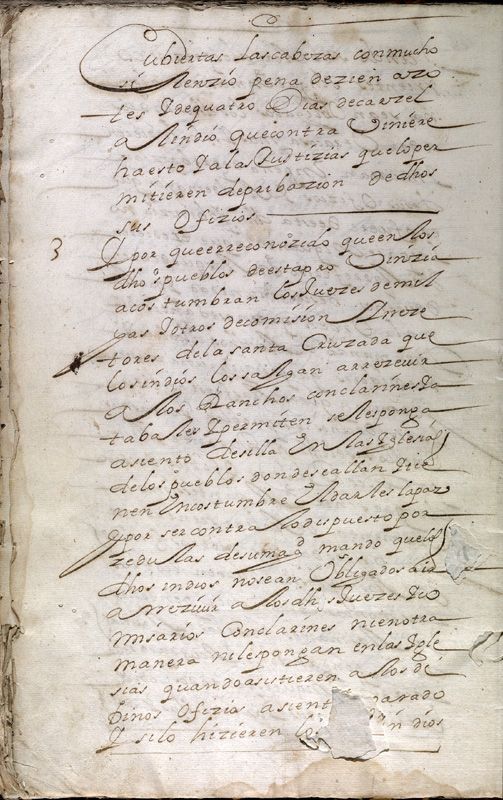 Cubiertas las cabezas con mucho
silenzio pena de zien azo
tes Y de quatro Dias de carzel
al indio que contra Viniere
ha esto Y a las Justizias que lo per
mitieren de pribazion de dhos
sus Ofizios
3 Y por que e rreconozido que en los
dhos pueblos de esta proVinzia
acostumbran los Juezes de mil
pas Y otros de comision
tores de la santa Cruzada que
los indios los salgan a rrezeuir
a los Ranchos con clarines Y a
tabales Y permiten se les ponga
asiento de silla En las Yglesias
de los pueblos donde se allan Y tie
nen En costumbre El dar les la paz
Y por ser contra lo dispuesto por
zedulas de su magd mando que los
dhos indios no sean Obligados a ir
a rreziuir a los dhos Juezes Y co
misarios Con clarines ni en otra
manera ni les pongan en las Ygle
sias quando asistieren a los di
binos Ofizios asient parado
Y si lo hizieren los indios